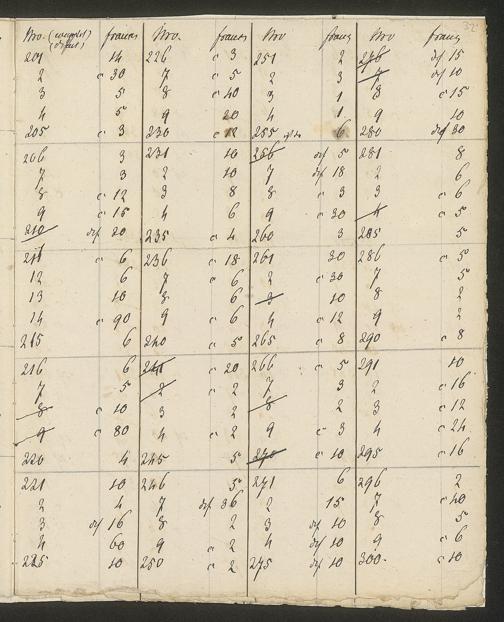 No. (wounded) (defunct) francs No. francs No francs No francs
201 14 226 c 3 251 2 276 def 15
2 c 30 7 c 5 2 3 7 def 10
3 5 8 c 40 3 1 8 c 15
4 5 9 20 4 1 9 10
205 c 3 230 c 12 255 6 280 def 30
206 3 231 10 256 def 5 281 8
7 3 2 10 7 def 18 2 6
8 c 12 3 8 8 c 3 3 c 6
9 c 15 4 6 9 c 30 4 c 5
210 def 20 235 c 4 260 3 285 5
211 c 6 236 c 18 261 30 286 c 5
12 6 7 c 6 2 c 30 7 5
13 10 8 6 3 10 8 2
14 c 90 9 c 6 4 c 12 9 2
215 6 240 c 5 265 c 8 290 c 8
216 6 241 c 20 266 c 5 291 10
7 5 2 c 2 7 3 2 c 16
8 c 10 3 2 8 2 3 c 12
9 c 80 4 c 2 9 c 3 4 c 24
220 4 245 5 270 c 10 295 c 16
221 10 246 5 271 6 296 2
2 4 7 def 36 2 15 7 c 40
3 def 16 8 2 3 def 10 8 5
4 60 9 c 2 4 def 10 9 c 6
225 10 250 c 2 275 def 10 300 c 10